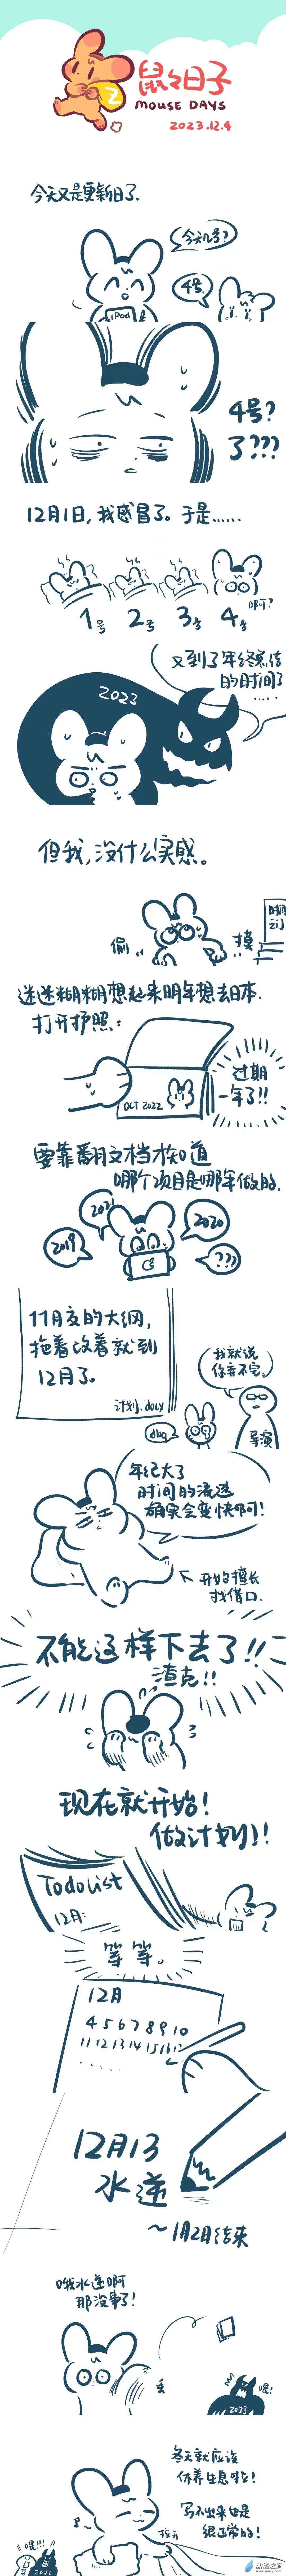 鼠鼠日子
MOUSE DAYS
2023.12.4
今天又是更新日了.
今天几号?
4号.
iPod
4号?
了???
12月1日,我感冒了。于是……
1号
2号
3号
4号
啊?
又到了年终总结
的时间了
……
2023
但我,没什么实感。
偷
摸
迷迷糊糊想起来明年想去日本.
打开护照:
OCT 2022
过期
一年了!!
要靠翻文档才知道
哪个项目是哪年做的.
2019
2021
2020
???
11月交的大纲,
拖着改着就到
12月了。
计划.docx
我就说
你弄不完。
dbq
导演
年纪大了
时间的流逝
确实会变快啊!
开始擅长
找借口.
不能这样下去了!!
渣克!!
现在就开始!
做计划!!
Todo List
12月:
等等。
12月
4 5 6 7 8 9 10
11 12 13 14 15 16 17
12月13
水逆
~1月2日结束
哦水逆啊
那没事了!
丢
喂!
2023
冬天就应该
休养生息啦!
写不出来也是
很正常的!
喂!!!
2023
动漫之家